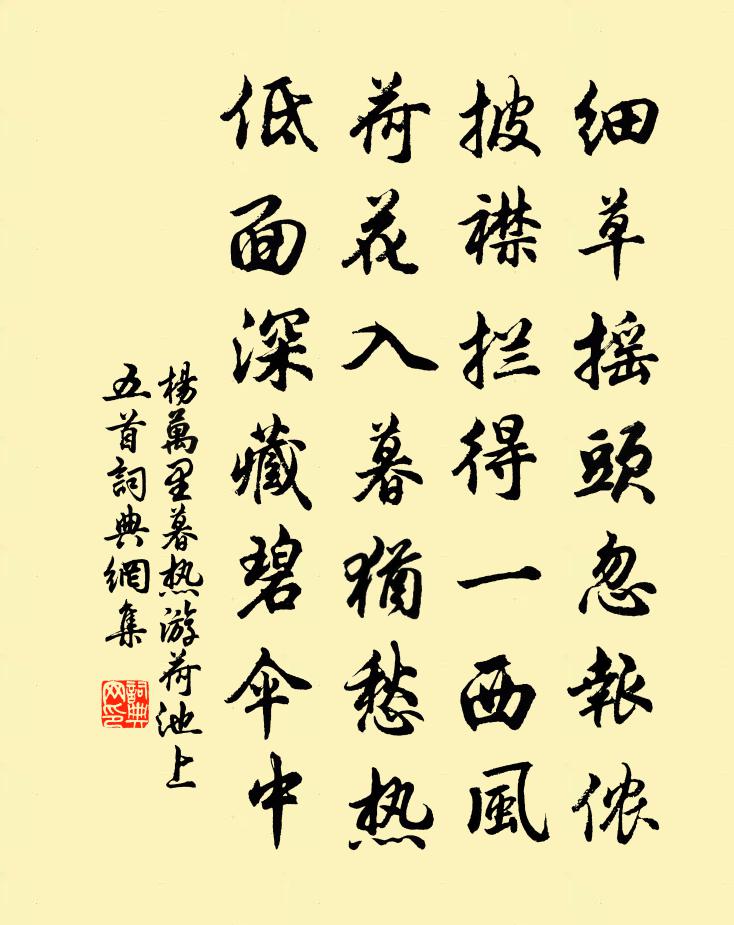 细草摇頭忽報侬
披襟拦得一西風
荷花入暮猶愁热
低面深藏碧伞中
楊萬里暮热游荷池上
五首詞典網集
詞典網印